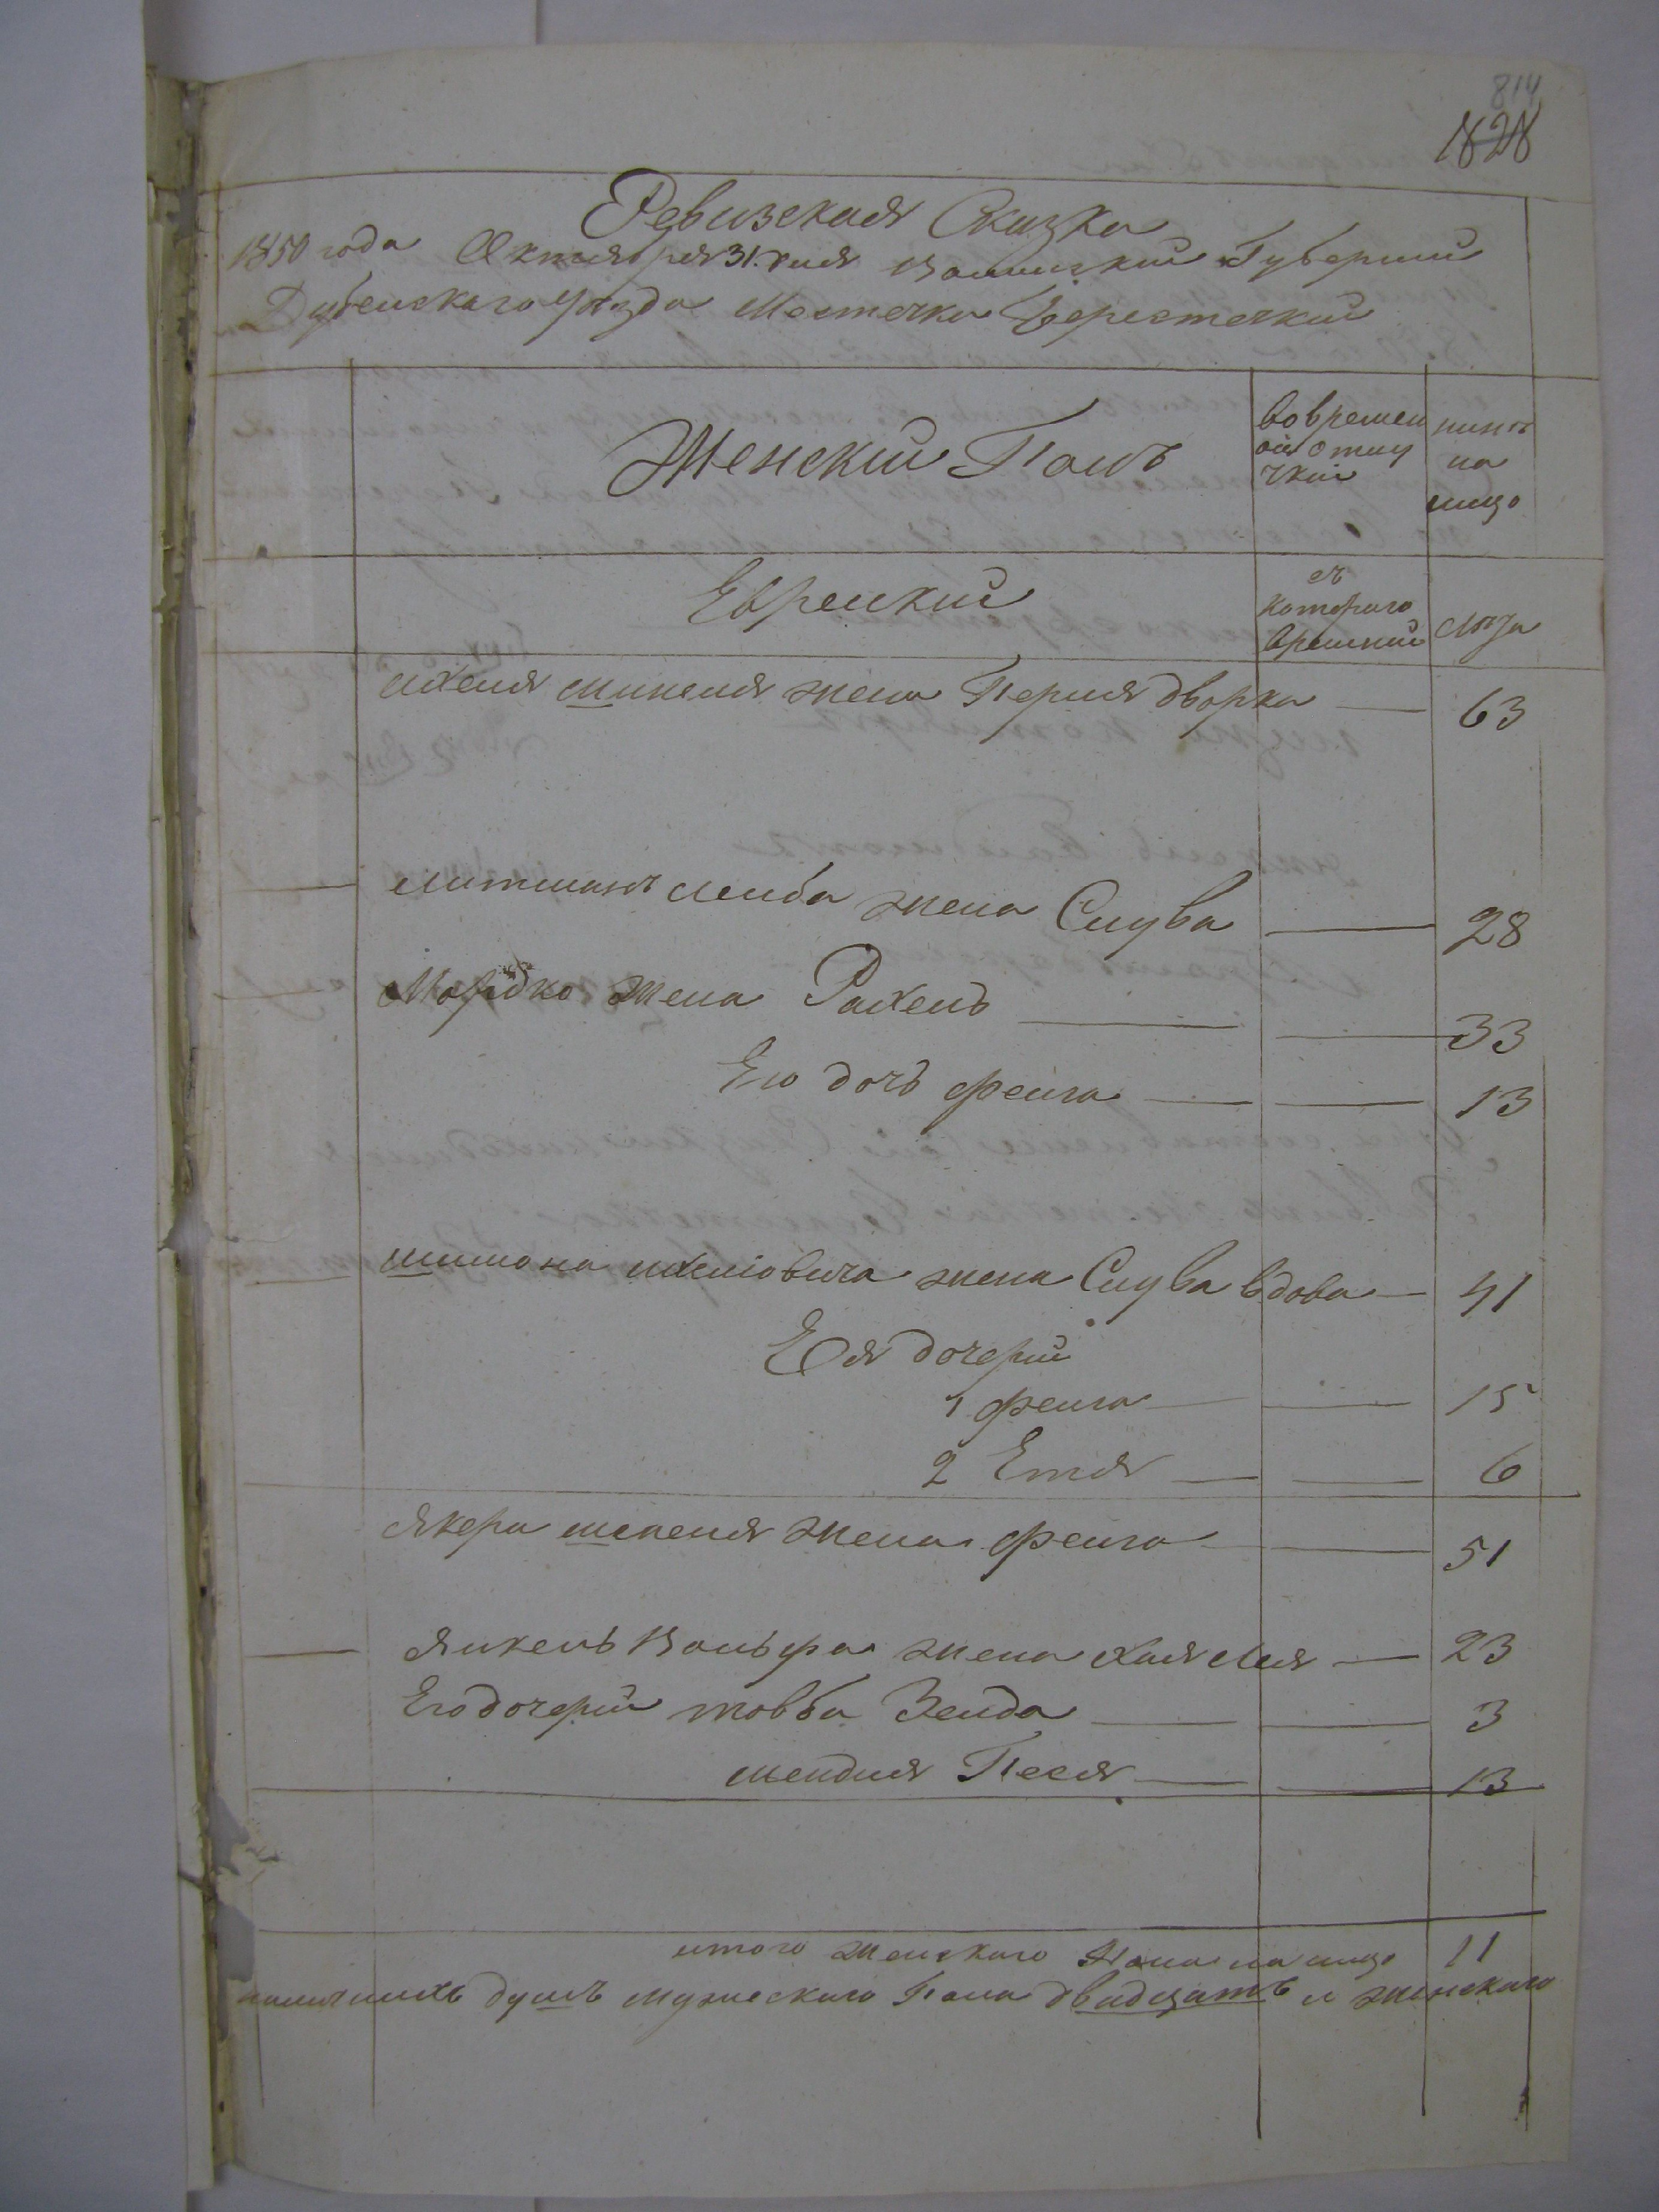 814
1828
Ревизская Сказка
1850 года Октября 31. дня Волинзкой Губернии
Дубенскаго уезда Местечка Берестечкий
Женский Полъ
во времен
ой отлу
чкий
нинъ
на
лицо
Еврейкий
съ
котораго
времений
лета
ихеля шикеля жена Перля дворка 63
литманъ лейба жена Слува 28
Мордко жена Рахель 33
Его дочь фейга 13
шимона ихелювича жена Слува вдова 41
Ея дочерий
1 фейга 15
2 Етя 6
Якера шекеля жена фейга 51
Янкель Вольфа жена хая лея 23
Его дочерий товба Зейда 3
шейдля Песя 13
итого женскаго Пола на лицо 11
наличныхъ душъ мужескаго Пола двадцать и женскаго